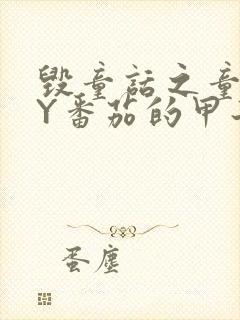 毁童话之童
Y番茄的甲
蛋尘